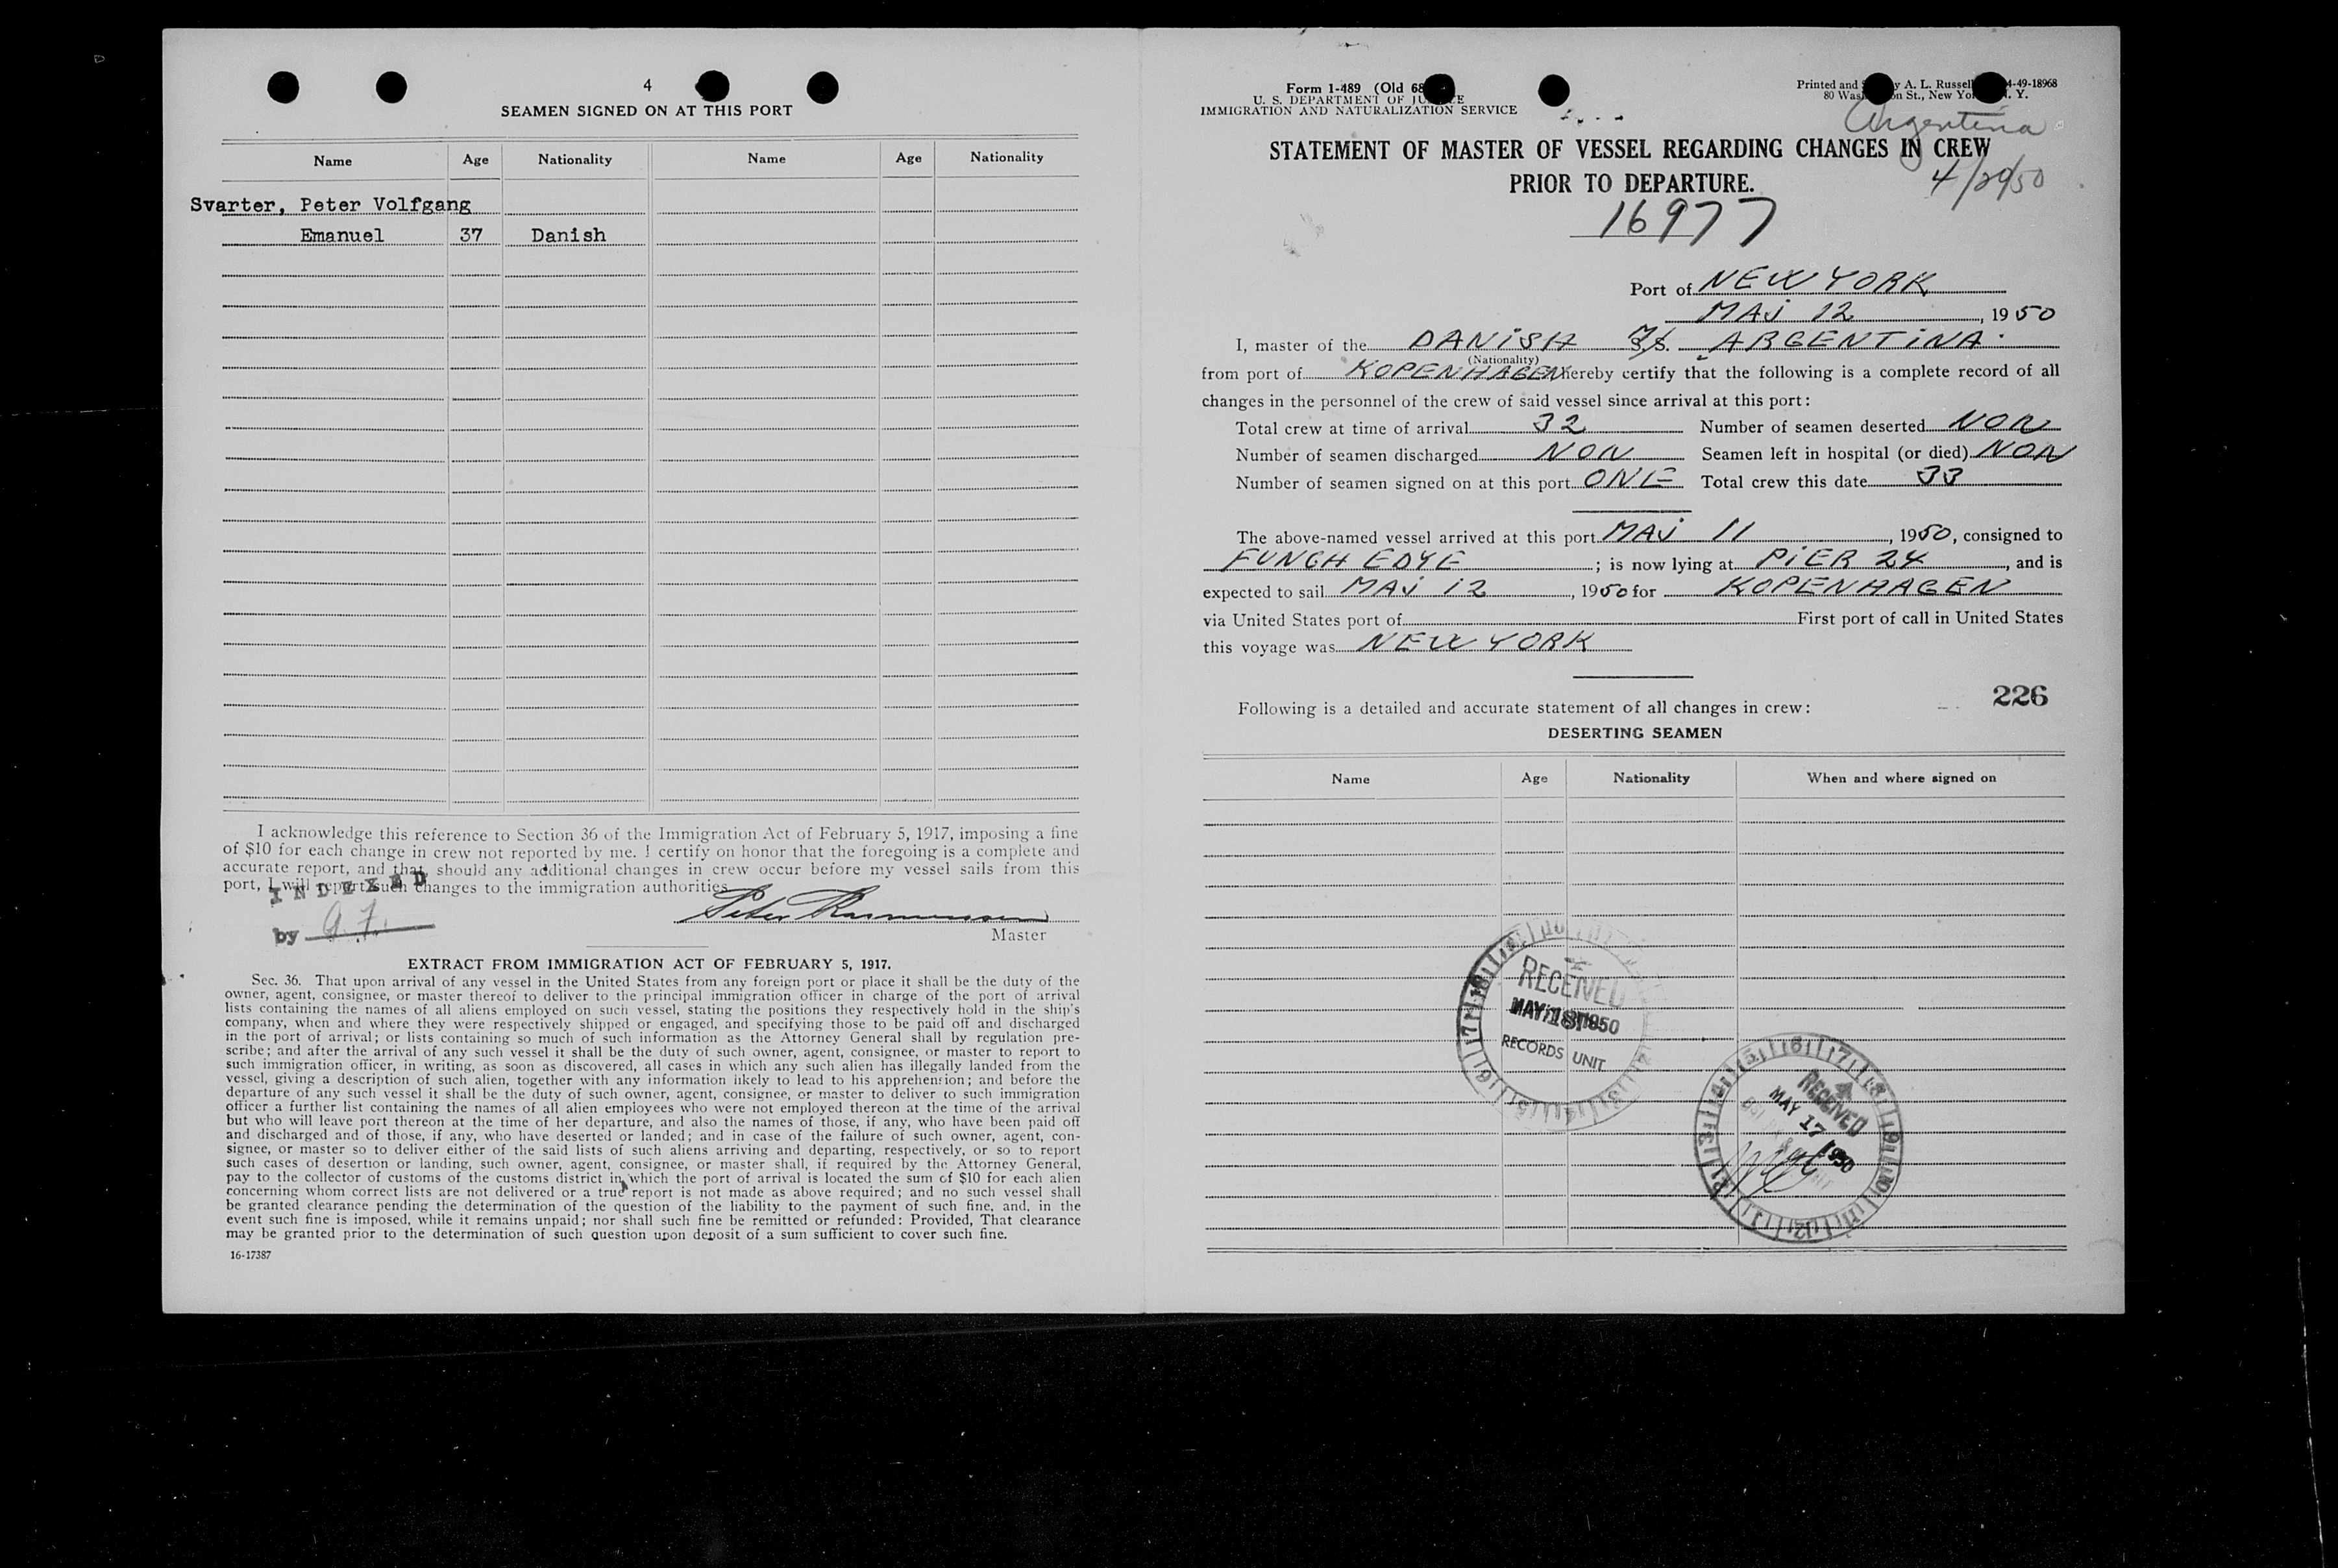 4
SEAMEN SIGNED ON AT THIS PORT
Name Age Nationality Name Age Nationality
Svarter, Peter Volfgang
Emanuel 37 Danish
I acknowledge this reference to Section 36 of the Immigration Act of February 5, 1917, imposing a fine
of $10 for each change in crew not reported by me. I certify on honor that the foregoing is a complete and
accurate report, and that, should any additional changes in crew occur before my vessel sails from this
port, I will report such changes to the immigration authorities.
INDEXED
by G.F.
Peter Rasmussen
Master
EXTRACT FROM IMMIGRATION ACT OF FEBRUARY 5, 1917.
Sec. 36. That upon arrival of any vessel in the United States from any foreign port or place it shall be the duty of the
owner, agent, consignee, or master thereof to deliver to the principal immigration officer in charge of the port of arrival
lists containing the names of all aliens employed on such vessel, stating the positions they respectively hold in the ship's
company, when and where they were respectively shipped or engaged, and specifying those to be paid off and discharged
in the port of arrival; or lists containing so much of such information as the Attorney General shall by regulation pre-
scribe; and after the arrival of any such vessel it shall be the duty of such owner, agent, consignee, or master to report to
such immigration officer, in writing, as soon as discovered, all cases in which any such alien has illegally landed from the
vessel, giving a description of such alien, together with any information likely to lead to his apprehension; and before the
departure of any such vessel it shall be the duty of such owner, agent, consignee, or master to deliver to such immigration
officer a further list containing the names of all alien employees who were not employed thereon at the time of the arrival
but who will leave port thereon at the time of her departure, and also the names of those, if any, who have been paid off
and discharged and of those, if any, who have deserted or landed; and in case of the failure of such owner, agent, con-
signee, or master so to deliver either of the said lists of such aliens arriving and departing, respectively, or so to report
such cases of desertion or landing, such owner, agent, consignee, or master shall, if required by the Attorney General,
pay to the collector of customs of the customs district in which the port of arrival is located the sum of $10 for each alien
concerning whom correct lists are not delivered or a true report is not made as above required; and no such vessel shall
be granted clearance pending the determination of the question of the liability to the payment of such fine, and, in the
event such fine is imposed, while it remains unpaid; nor shall such fine be remitted or refunded: Provided, That clearance
may be granted prior to the determination of such question upon deposit of a sum sufficient to cover such fine.
16-17387
Form 1-489 (Old 68
U. S. DEPARTMENT OF JUSTICE
IMMIGRATION AND NATURALIZATION SERVICE
Printed and y A. L. Russell 4-49-18968
80 Washington St., New York, N. Y.
Argentina
STATEMENT OF MASTER OF VESSEL REGARDING CHANGES IN CREW
PRIOR TO DEPARTURE.
4/29/50
16977
Port of NEW YORK
MAJ 12, 1950
I, master of the DANISH M/S. ARGENTINA.
(Nationality)
from port of KOPENHAGEN hereby certify that the following is a complete record of all
changes in the personnel of the crew of said vessel since arrival at this port:
Total crew at time of arrival 32 Number of seamen deserted NON
Number of seamen discharged NON Seamen left in hospital (or died) NON
Number of seamen signed on at this port ONE Total crew this date 33
The above-named vessel arrived at this port MAJ 11, 1950, consigned to
FUNCH EDYE; is now lying at PIER 24, and is
expected to sail MAJ 12, 1950 for KOPENHAGEN
via United States port of First port of call in United States
this voyage was NEW YORK
226
Following is a detailed and accurate statement of all changes in crew:
DESERTING SEAMEN
Name Age Nationality When and where signed on
RECEIVED
MAY 18 1950
RECORDS UNIT
RECEIVED
MAY 17 1950